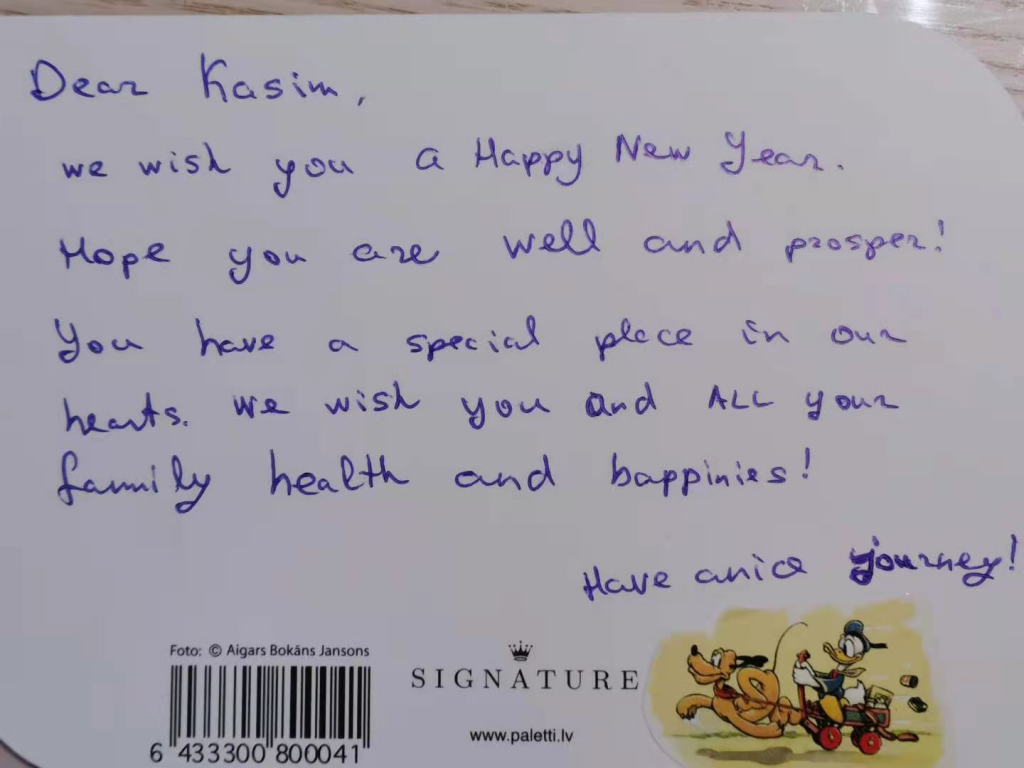 Dear Kasim,
we wish you a Happy New Year.
Hope you are well and prosper!
You have a special place in our
hearts. We wish you and ALL your
family health and happinies!
Have a nice journey!
Foto: © Aigars Bokāns Jansons
SIGNATURE
www.paletti.lv
6 433300 800041